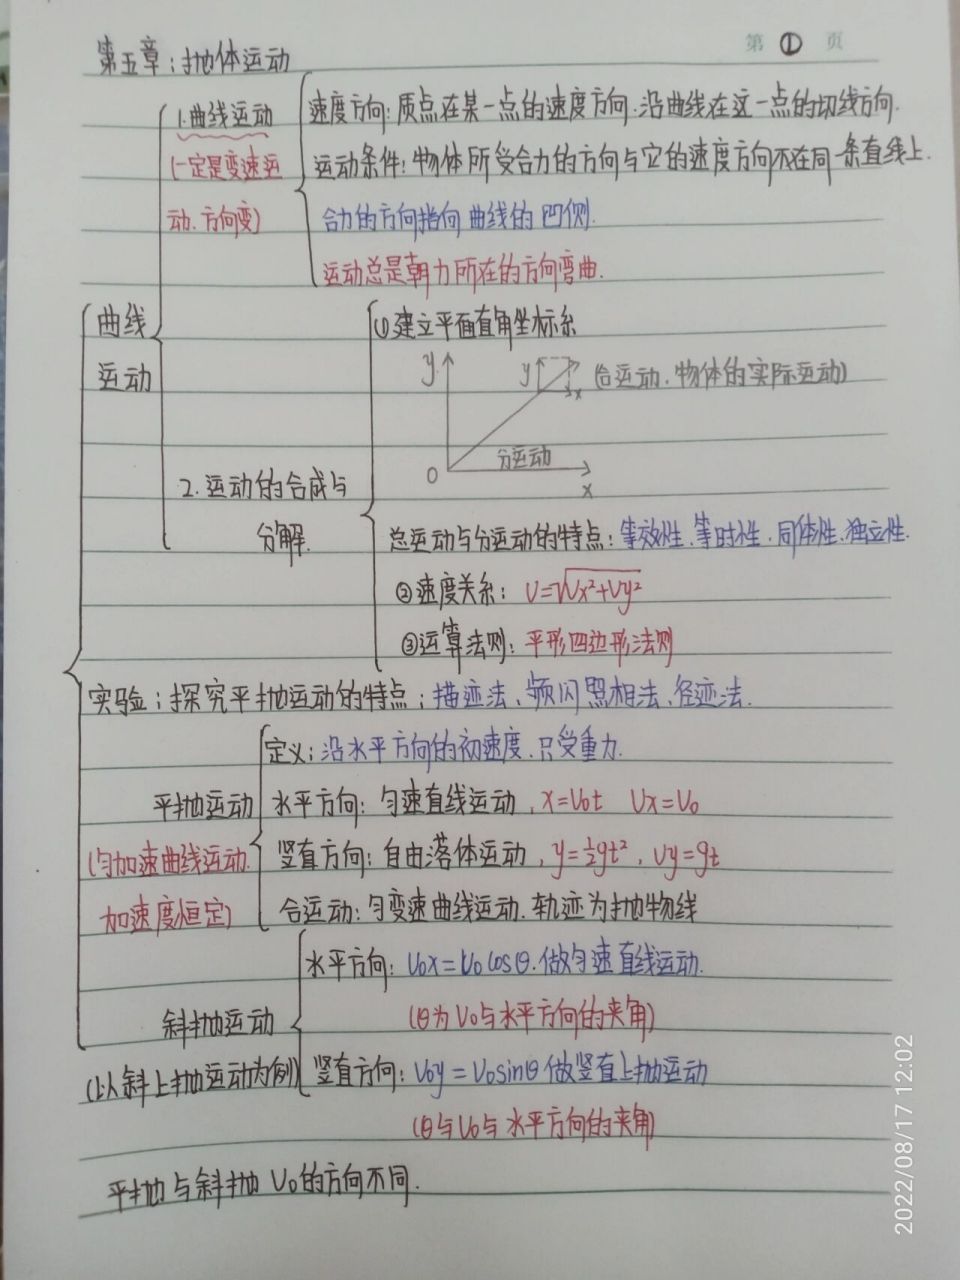 第 ① 页
第五章：抛体运动
1.曲线运动
(一定是变速运
动.方向变)
速度方向：质点在某一点的速度方向.沿曲线在这一点的切线方向.
运动条件：物体所受合力的方向与它的速度方向不在同一条直线上.
合力的方向指向曲线的凹侧.
运动总是朝力所在的方向弯曲.
曲线
运动
2.运动的合成与
分解.
①建立平面直角坐标系
y
y
x
(合运动.物体的实际运动)
分运动
O
x
总运动与分运动的特点：等效性、等时性、同体性、独立性.
②速度关系：V=√Vx²+Vy²
③运算法则：平形四边形法则
实验：探究平抛运动的特点：描迹法、频闪照相法、径迹法.
平抛运动
(匀加速曲线运动.
加速度恒定)
定义：沿水平方向的初速度.只受重力.
水平方向：匀速直线运动，x=V₀t Vx=V₀
竖直方向：自由落体运动，y=½gt²，Vy=gt
合运动：匀变速曲线运动.轨迹为抛物线
斜抛运动
(以斜上抛运动为例)
水平方向：V₀x=V₀cosθ.做匀速直线运动.
(θ为V₀与水平方向的夹角)
竖直方向：V₀y=V₀sinθ做竖直上抛运动
(θ与V₀与水平方向的夹角)
平抛与斜抛V₀的方向不同.
2022/08/17 12:02